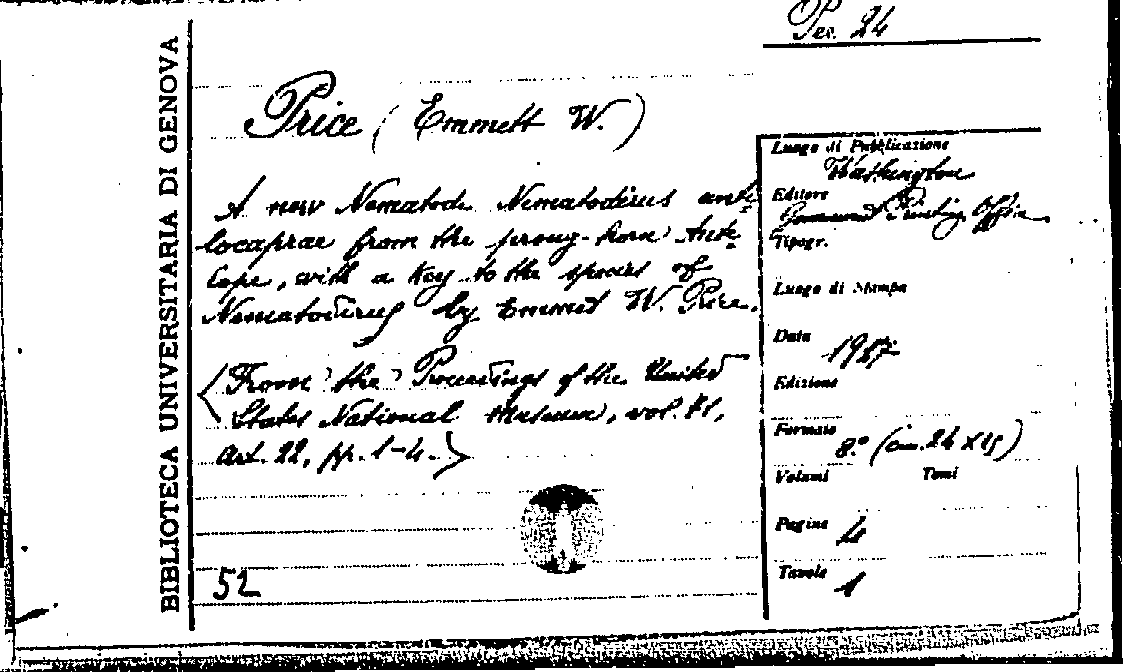 BIBLIOTECA UNIVERSITARIA DI GENOVA
Per. 24
Price (Emmett W.)
A new Nematode Nematodirus anti-
locaprae from the prong-horn Ante-
lope, with a key to the species of
Nematodirus by Emmett W. Price.
(From the Proceedings of the United
States National Museum, vol. 71,
Art. 22, pp. 1-4.)
52
Luogo di Pubblicazione
Washington
Editore
Government Printing Office
Tipogr.
Luogo di Stampa
Data 1927
Edizione
Formato 8° (cm. 24 x 15)
Volumi Tomi
Pagine 4
Tavole 1